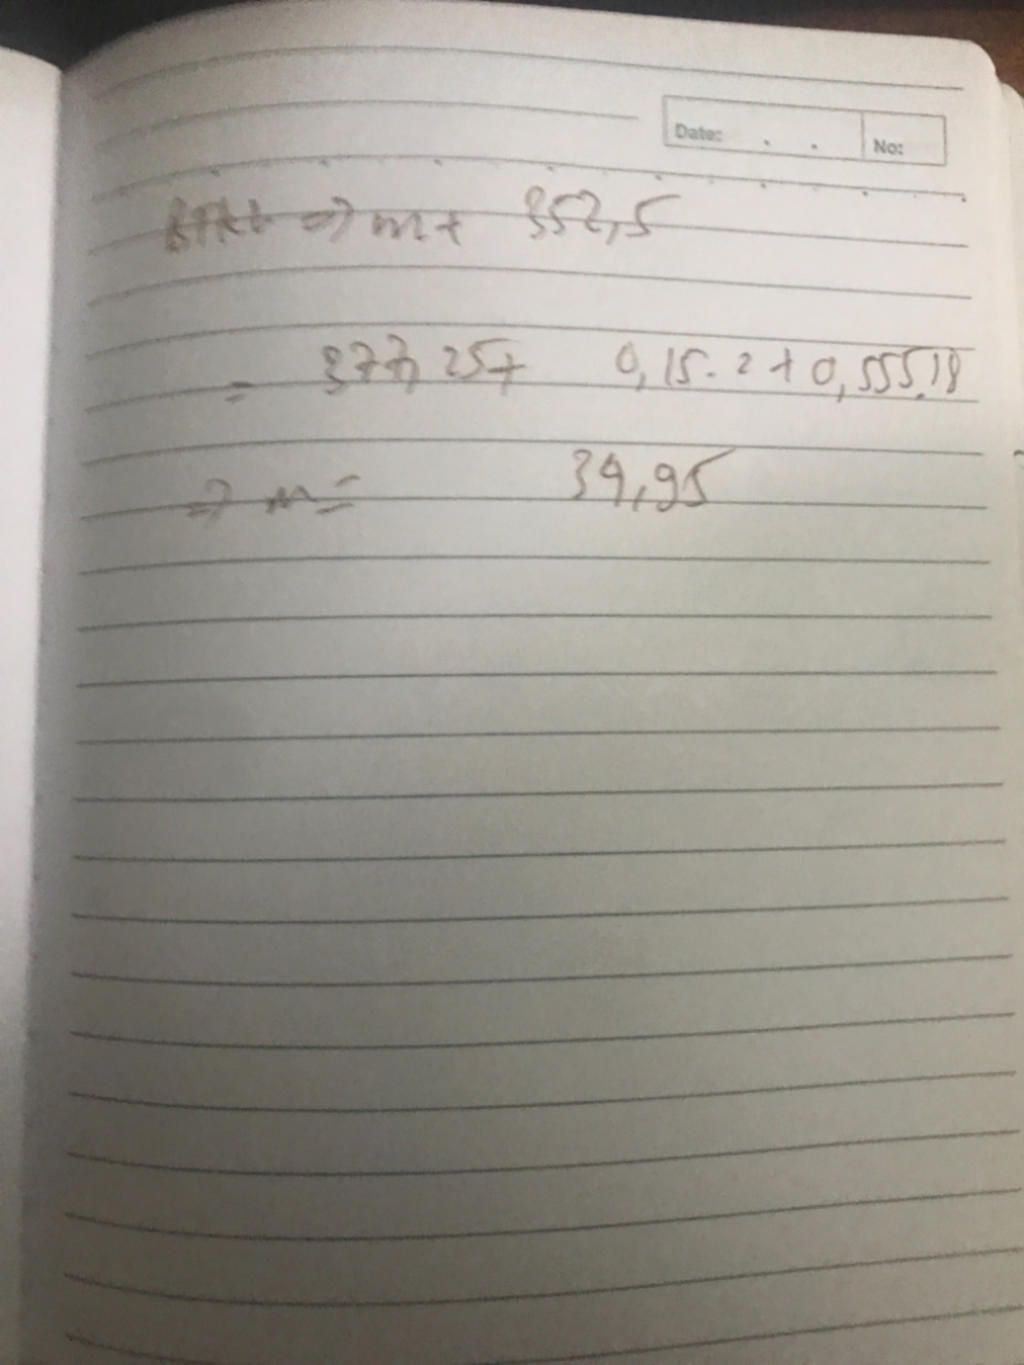 Date: . . No:
BTKL => m + 352,5
= 377,25 + 0,15.2 + 0,555.18
=> m = 34,95